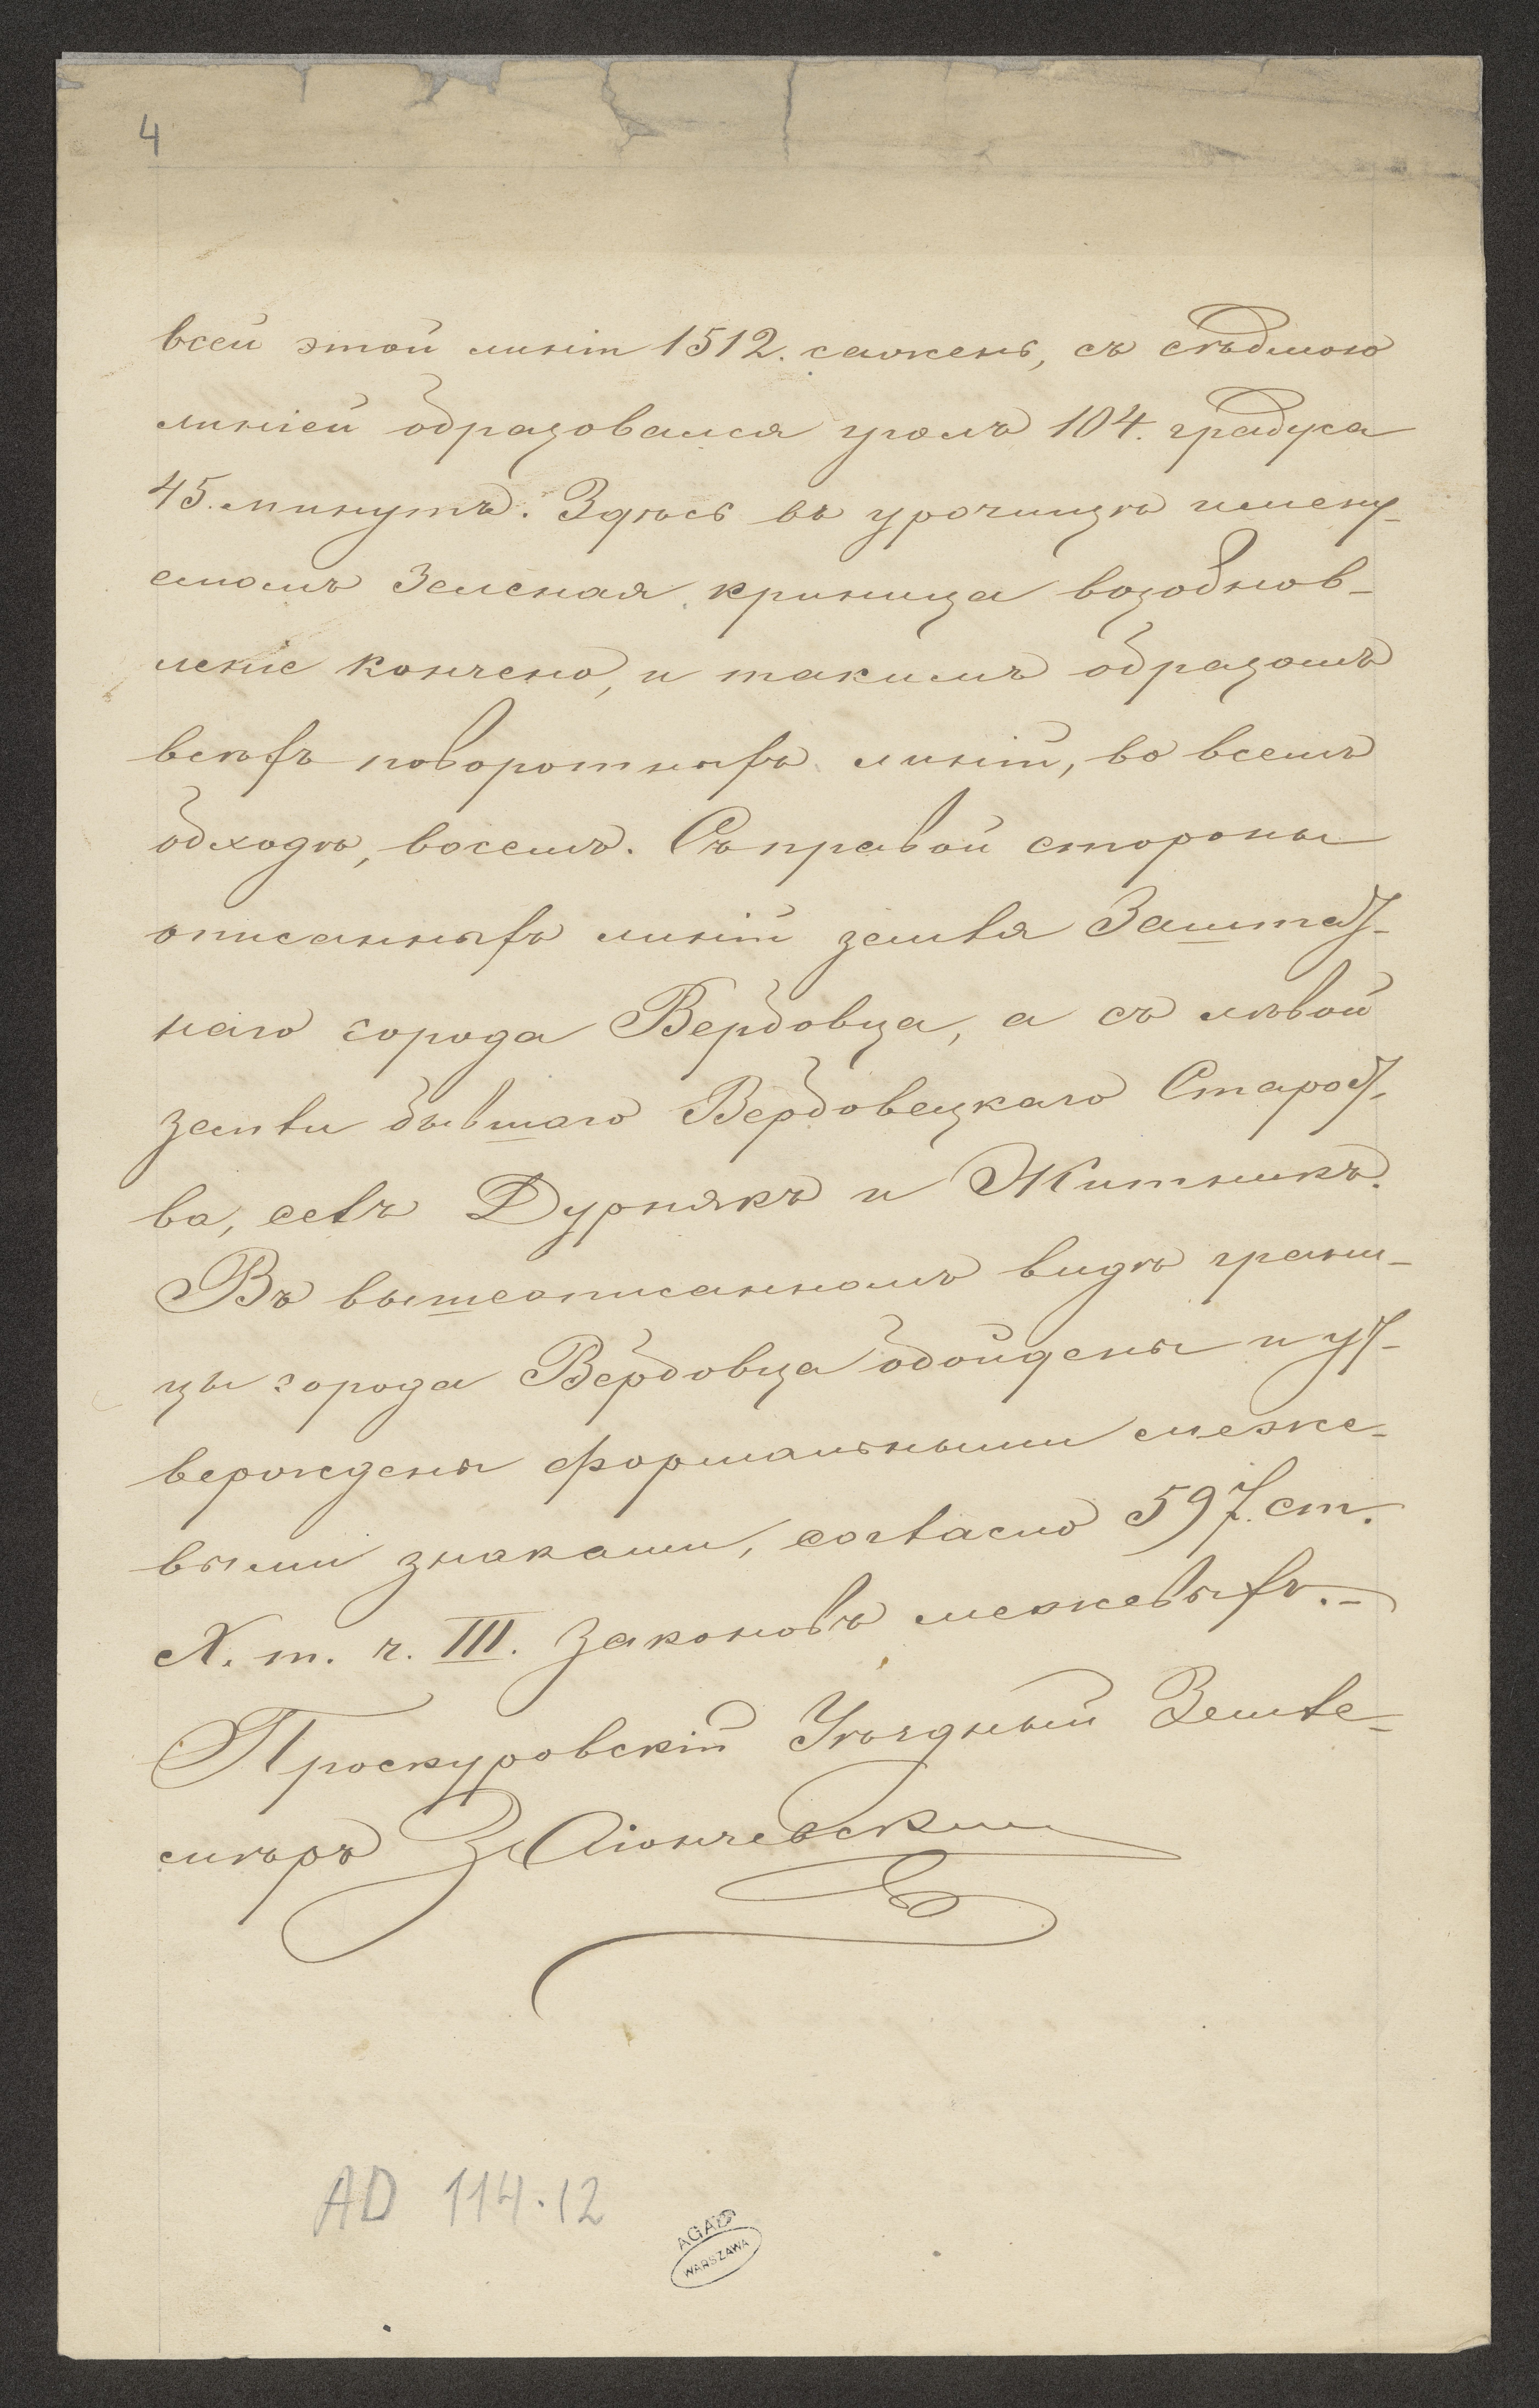 4
всей этой линіи 1512. сажень, съ седьмою
линіей образовался уголъ 104. градуса
45. минутъ. Здѣсь въ урочищѣ имену-
емомъ Зеленая криница возобнов-
леніе кончено, и такимъ образомъ
всѣхъ поворотныхъ линій, во всемъ
обходѣ, восемь. Съ правой стороны
описанныхъ линій земля Заштат-
наго города Вербовца, а съ лѣвой
земли бывшаго Вербовецкаго Старост-
ва, селъ Дурнякъ и Житникъ.
Въ вышеописанномъ видѣ грани-
цы города Вербовца обойдены и ут-
верождены формальными меже-
выми знаками, согласно 597. ст.
X. т. ч. III. Законовъ межевыхъ.-
Проскуровскій Уѣздный Земле-
мѣръ
AD 114.12
AGAD
WARSZAWA